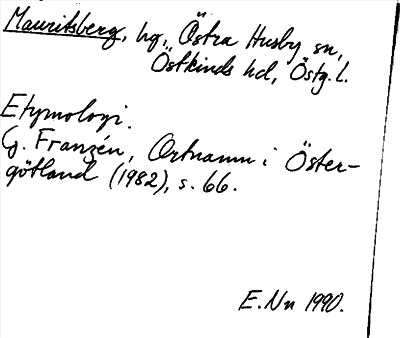 Mauritsberg, hg., Östra Husby sn,
Östkinds hd, Östg. l.
Etymologi.
G. Franzén, Ortnamn i Öster-
götland (1982), s. 66.
E. Nn 1990.